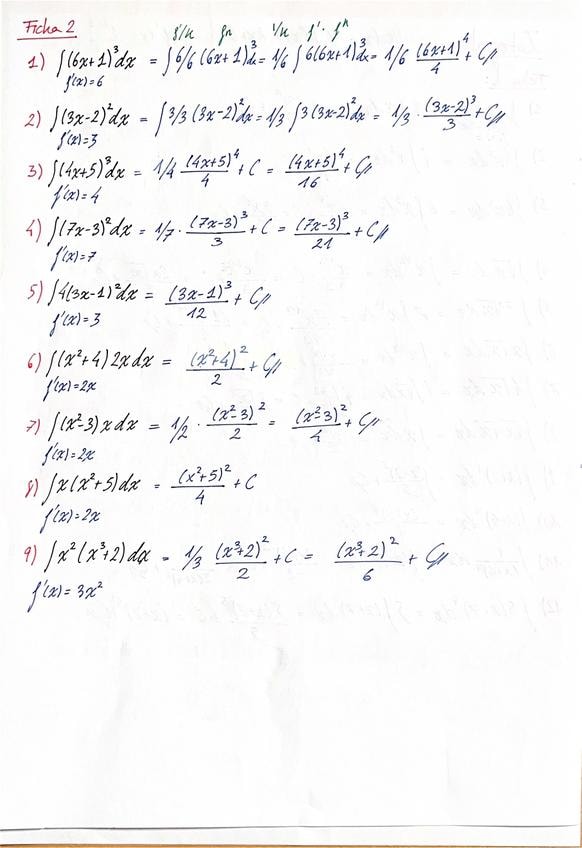 Ficha 2
1) ∫(6x+1)³dx = ∫6/6 (6x+1)³dx = 1/6 ∫6(6x+1)³dx = 1/6 (6x+1)⁴/4 + C//
f'(x)=6
2) ∫(3x-2)²dx = ∫3/3 (3x-2)²dx = 1/3 ∫3(3x-2)²dx = 1/3 · (3x-2)³/3 + C//
f'(x)=3
3) ∫(4x+5)³dx = 1/4 (4x+5)⁴/4 + C = (4x+5)⁴/16 + C//
f'(x)=4
4) ∫(7x-3)²dx = 1/7 · (7x-3)³/3 + C = (7x-3)³/21 + C//
f'(x)=7
5) ∫4(3x-1)²dx = (3x-1)³/12 + C//
f'(x)=3
6) ∫(x²+4) 2x dx = (x²+4)²/2 + C//
f'(x)=2x
7) ∫(x²-3) x dx = 1/2 · (x²-3)²/2 = (x²-3)²/4 + C//
f'(x)=2x
8) ∫x(x²+5)dx = (x²+5)²/4 + C
f'(x)=2x
9) ∫x²(x³+2)dx = 1/3 (x³+2)²/2 + C = (x³+2)²/6 + C//
f'(x)=3x²